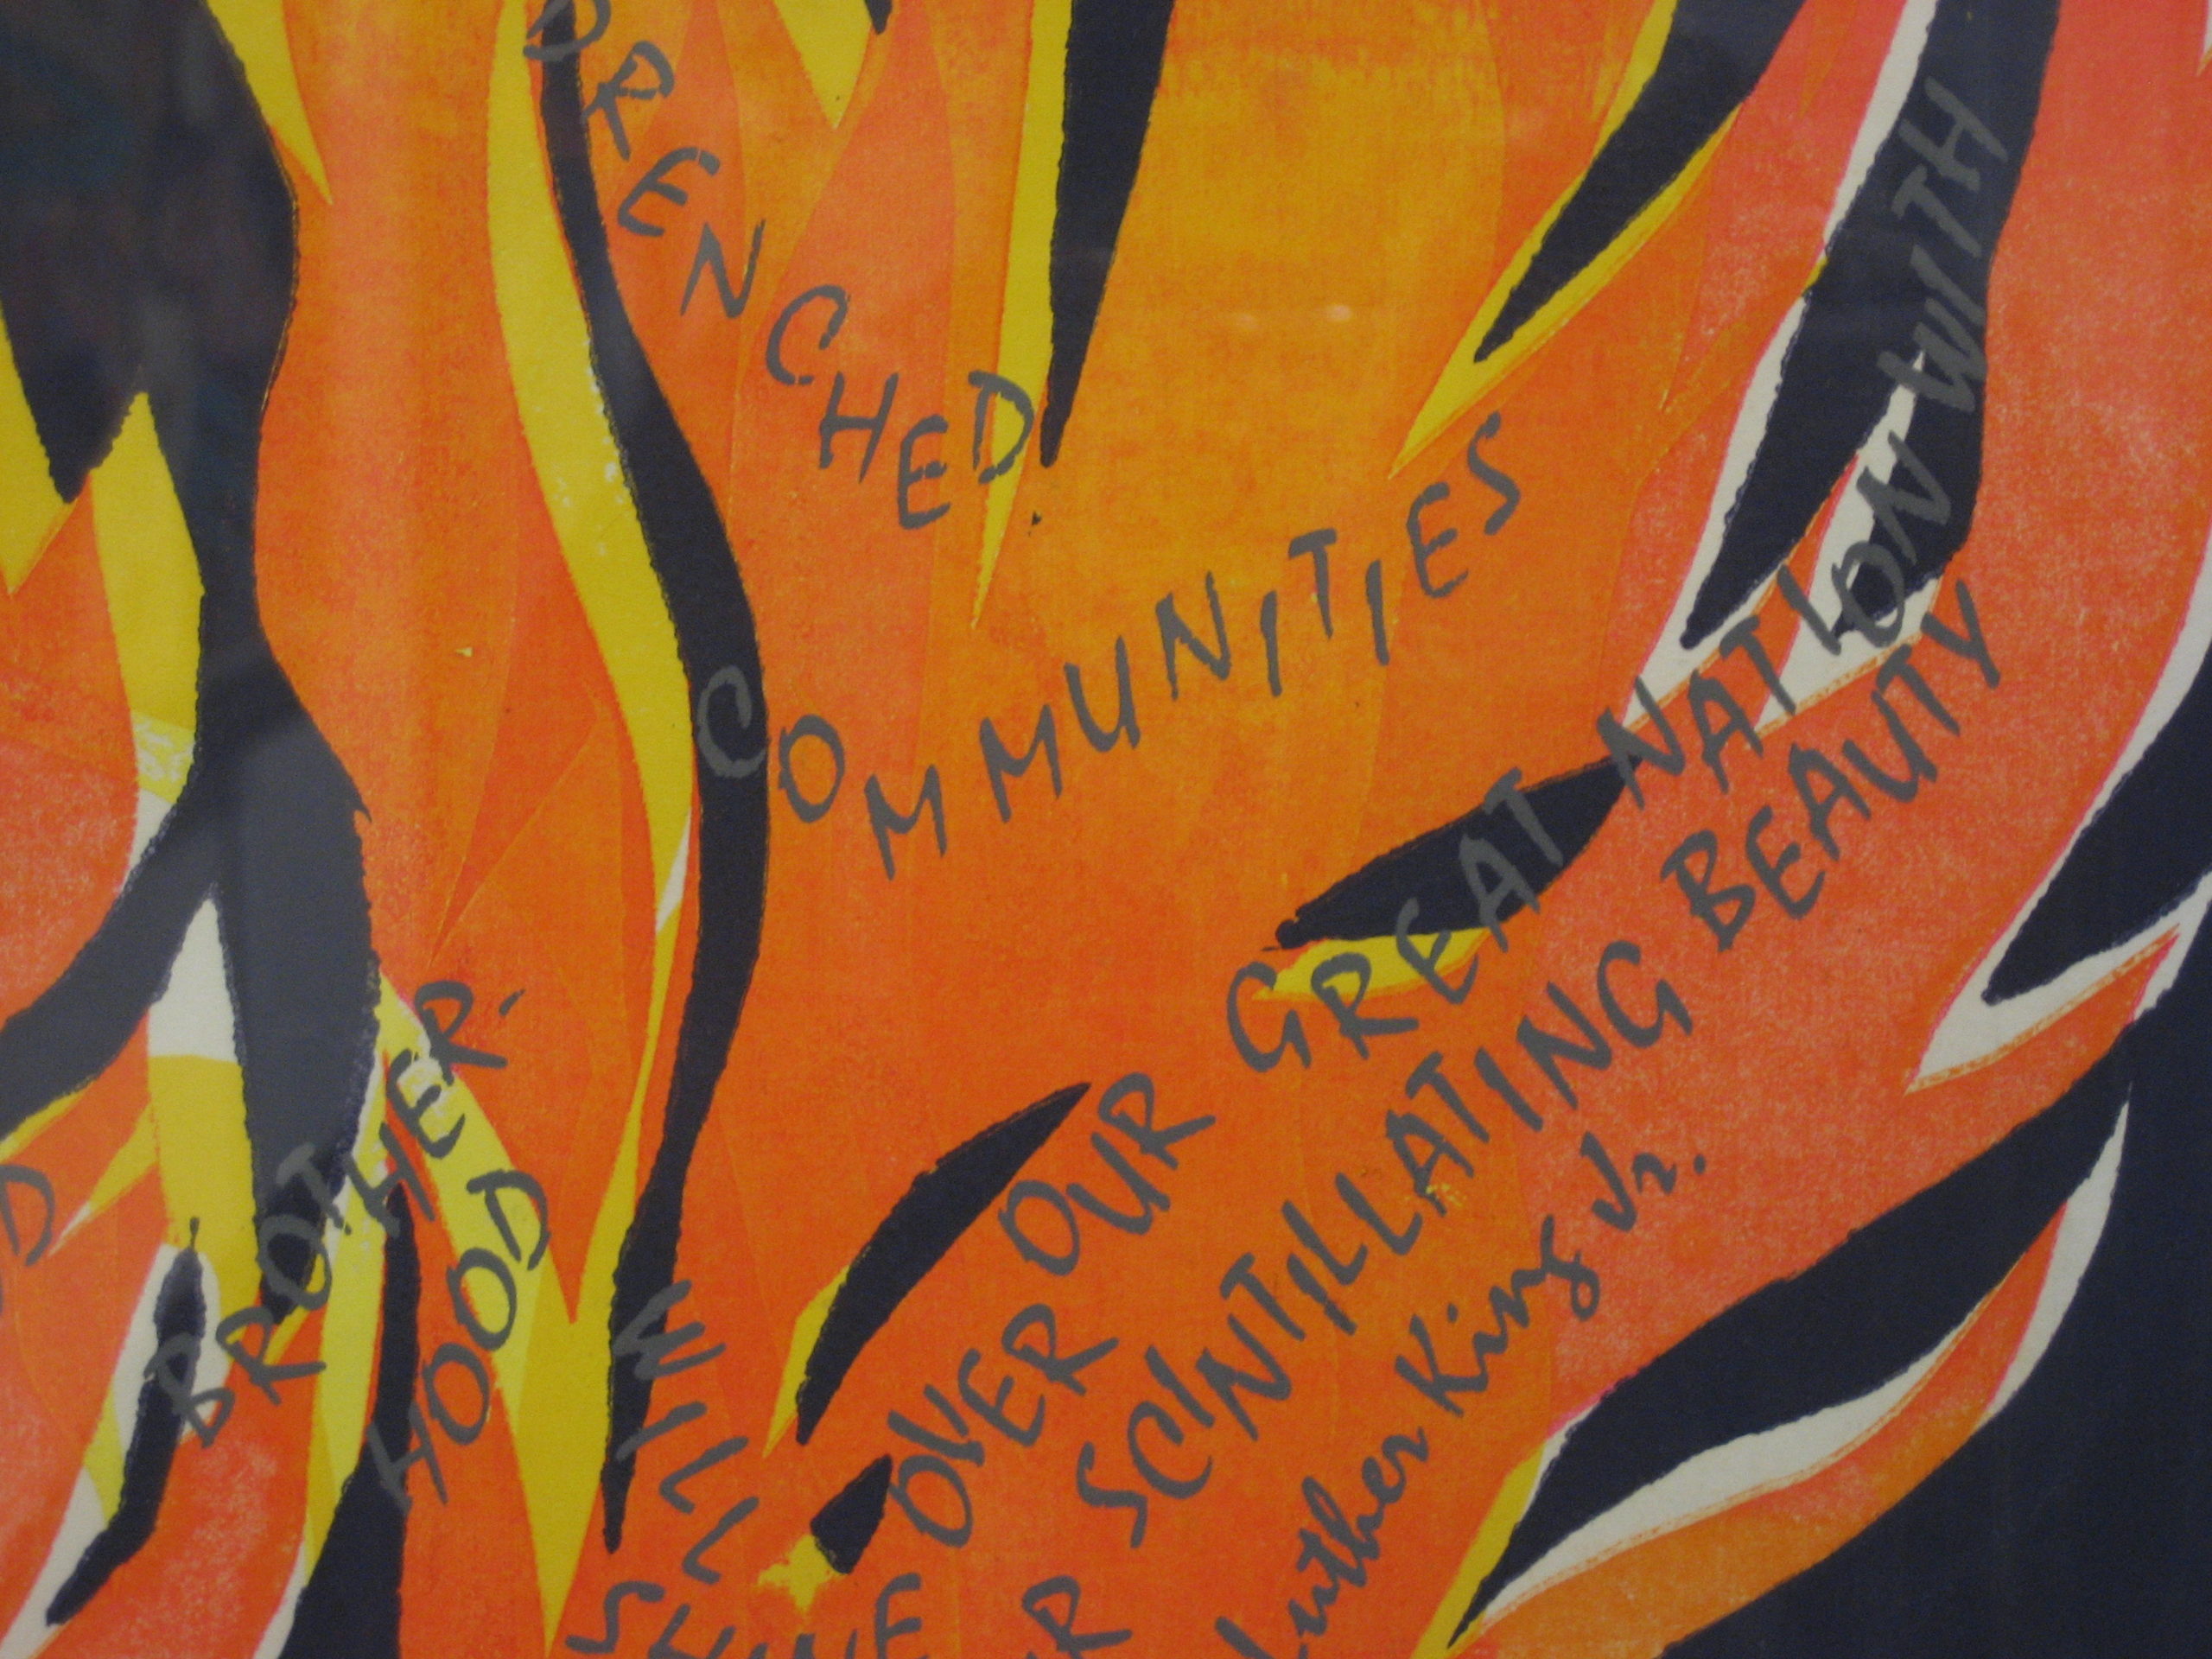 DRENCHED
COMMUNITIES
BROTHER-
HOOD
WILL
SHINE
OVER OUR GREAT NATION WITH
SCINTILLATING BEAUTY
Luther King Jr.